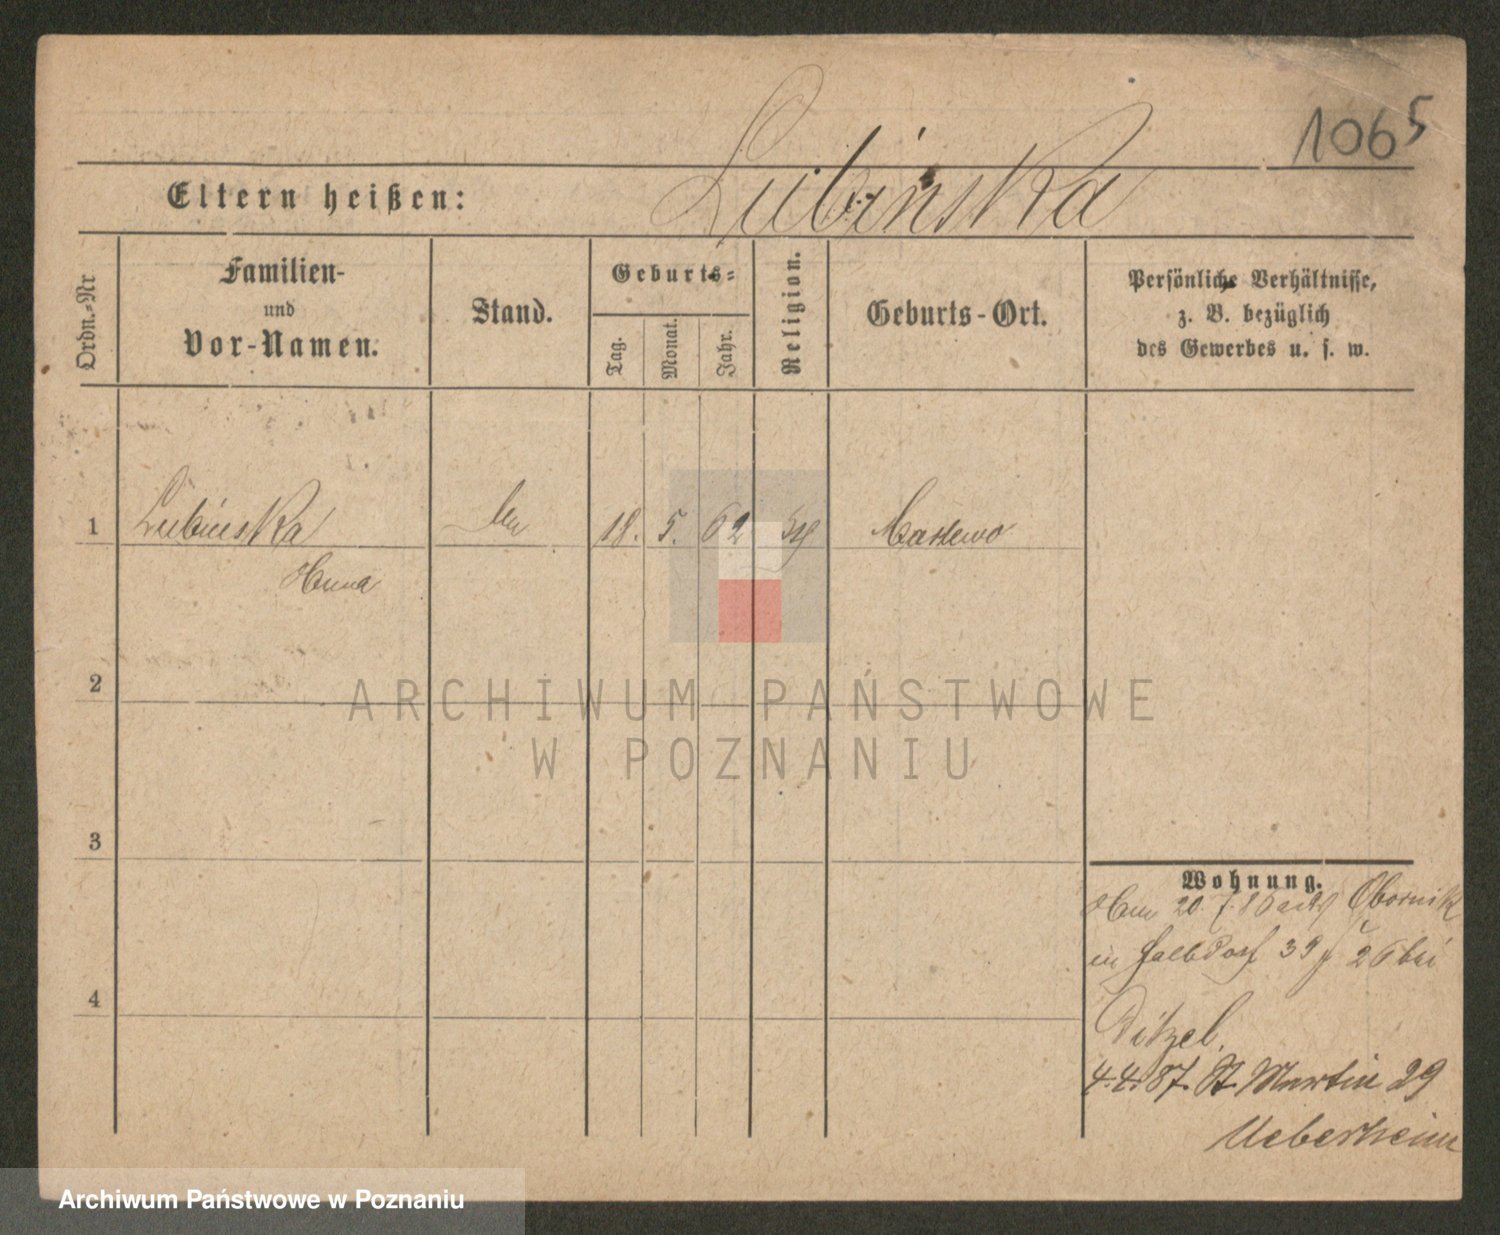 1065
Lubinska
Eltern heißen:
Ordn.-Nr
Familien-
und
Vor-Namen.
Stand.
Geburts-
Tag.
Monat.
Jahr.
Religion.
Geburts-Ort.
Persönliche Verhältnisse,
z. B. bezüglich
des Gewerbes u. s. w.
1 Lubinska 18. 5. 62
Anna
2
3
4
Wohnung.
20. 7. 86 Obornik
in 39 26 bei
Ditzel.
4.4.87. St Martin 29
Ueberheim
ARCHIWUM PAŃSTWOWE
W POZNANIU
Archiwum Państwowe w Poznaniu